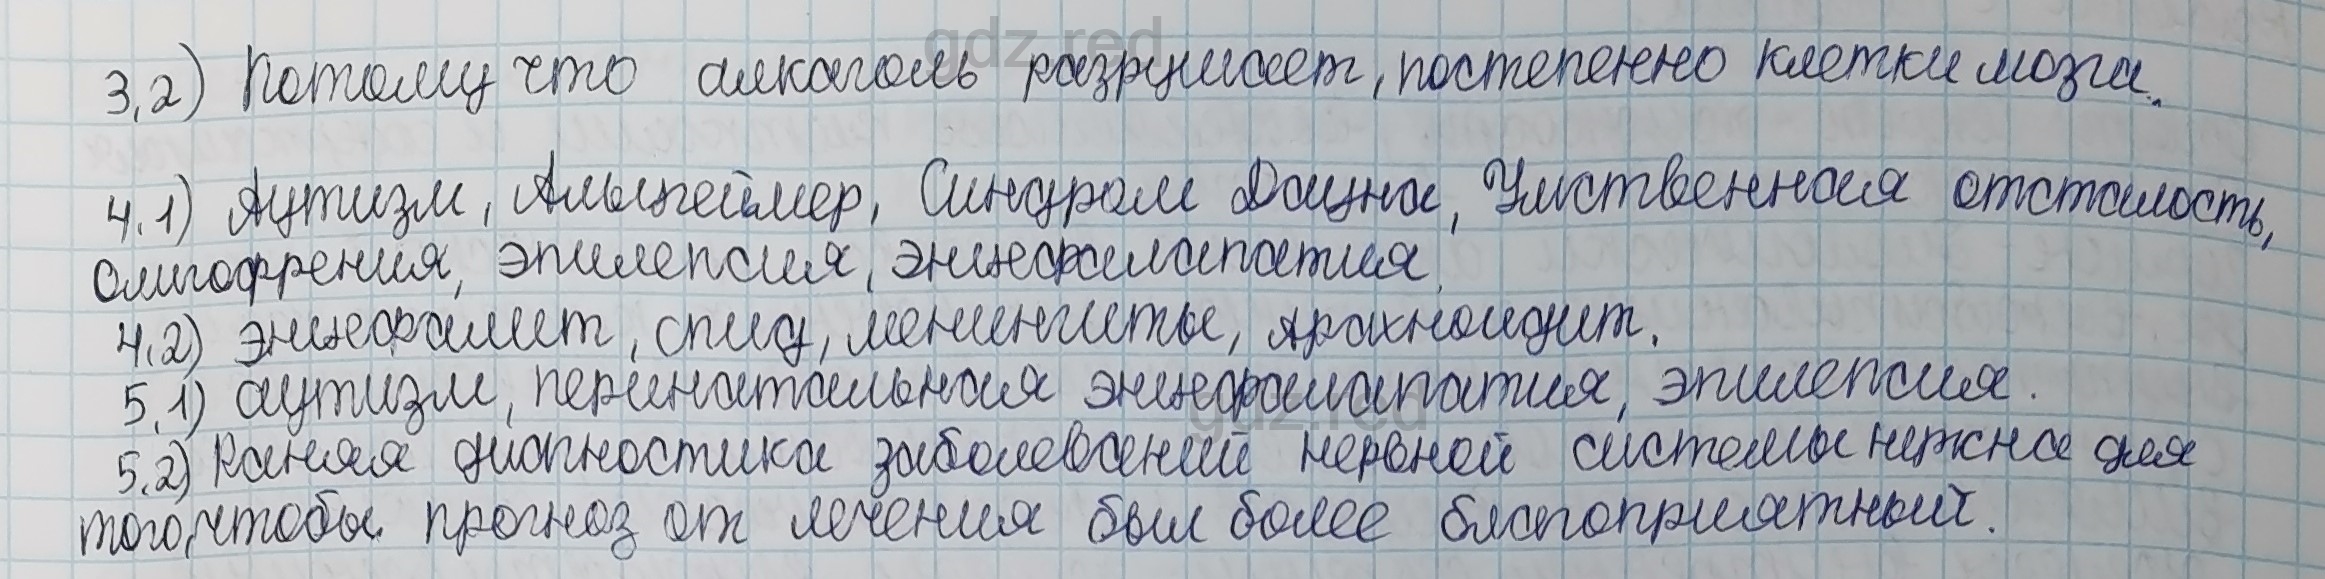 gdz.red
3,2) Потому что алкаголь разрушает, постепенно клетки мозга.
4.1) Аутизм, Альцгеймер, Синдром Дауна, Умственная отсталость,
Олигофрения, эпилепсия, энцефалапатия
4.2) энцефалит, спид, менингиты, Арахноидит.
5.1) аутизм, перинатальная энцефалапатия, эпилепсия.
gdz.red
5.2) Раняя диагностика заболеваний нервной системы нужна для
того, чтобы прогноз от лечения был более благоприятный.